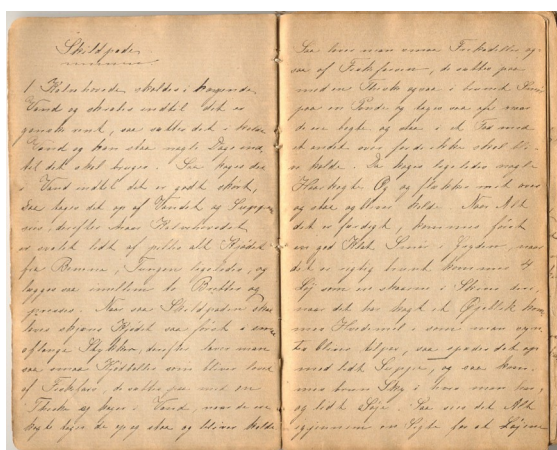 Skildpade.
1 Kalvehoved skoldes i kogende
Vand og skrabes indtil det er
ganske rent, saa sættes det i
Vand og kan staa nogle Dage ind-
til det skal bruges. Saa koges det
i Vand indtil det er godt mørt,
saa tages det op af Vandet og
naar Kalvehovedet
er kølet lidt af pilles alt Kjødet
fra Benene, Tungen ligeledes, og
lægges saa mellem to Brætter og
presses. Naar saa Skildpaden skal
laves skjæres Kjødet saa først i
aflange Stykker, derefter laver man
saa smaa Kjødboller som bliver lavet
af de sættes paa med en
Theske og koges i Vand, naar de ere
kogte tages de op og staa og bliver kolde
Saa laver man smaa Frikadeller og-
saa af Fiskefarsen, de sættes paa
med en Theske ogsaa i brunet Smør
paa en Pande og tages saa af, naar
de ere kogte og staa i et Fad med
et andet over for de ikke skal bli-
ve kolde. Saa koges ligeledes nogle
Haardkogte Æg og pilles
og staa og bliver kolde. Naar Alt
det er færdigt, kommes først
en god Klat Smør i Gryden, naar
det er rigtig brunt kommes 4
Løg som er skaaren i Skiver deri,
naar det har kogt et Øjeblik kom-
mes Hvedemel i som man
tes bliver saa spædes det op
med lidt Suppe, og saa kom-
mes brun Sky i hvis man har,
og lidt Soja. Saa sies det Alt
igjennem en Sigte for at Løgene